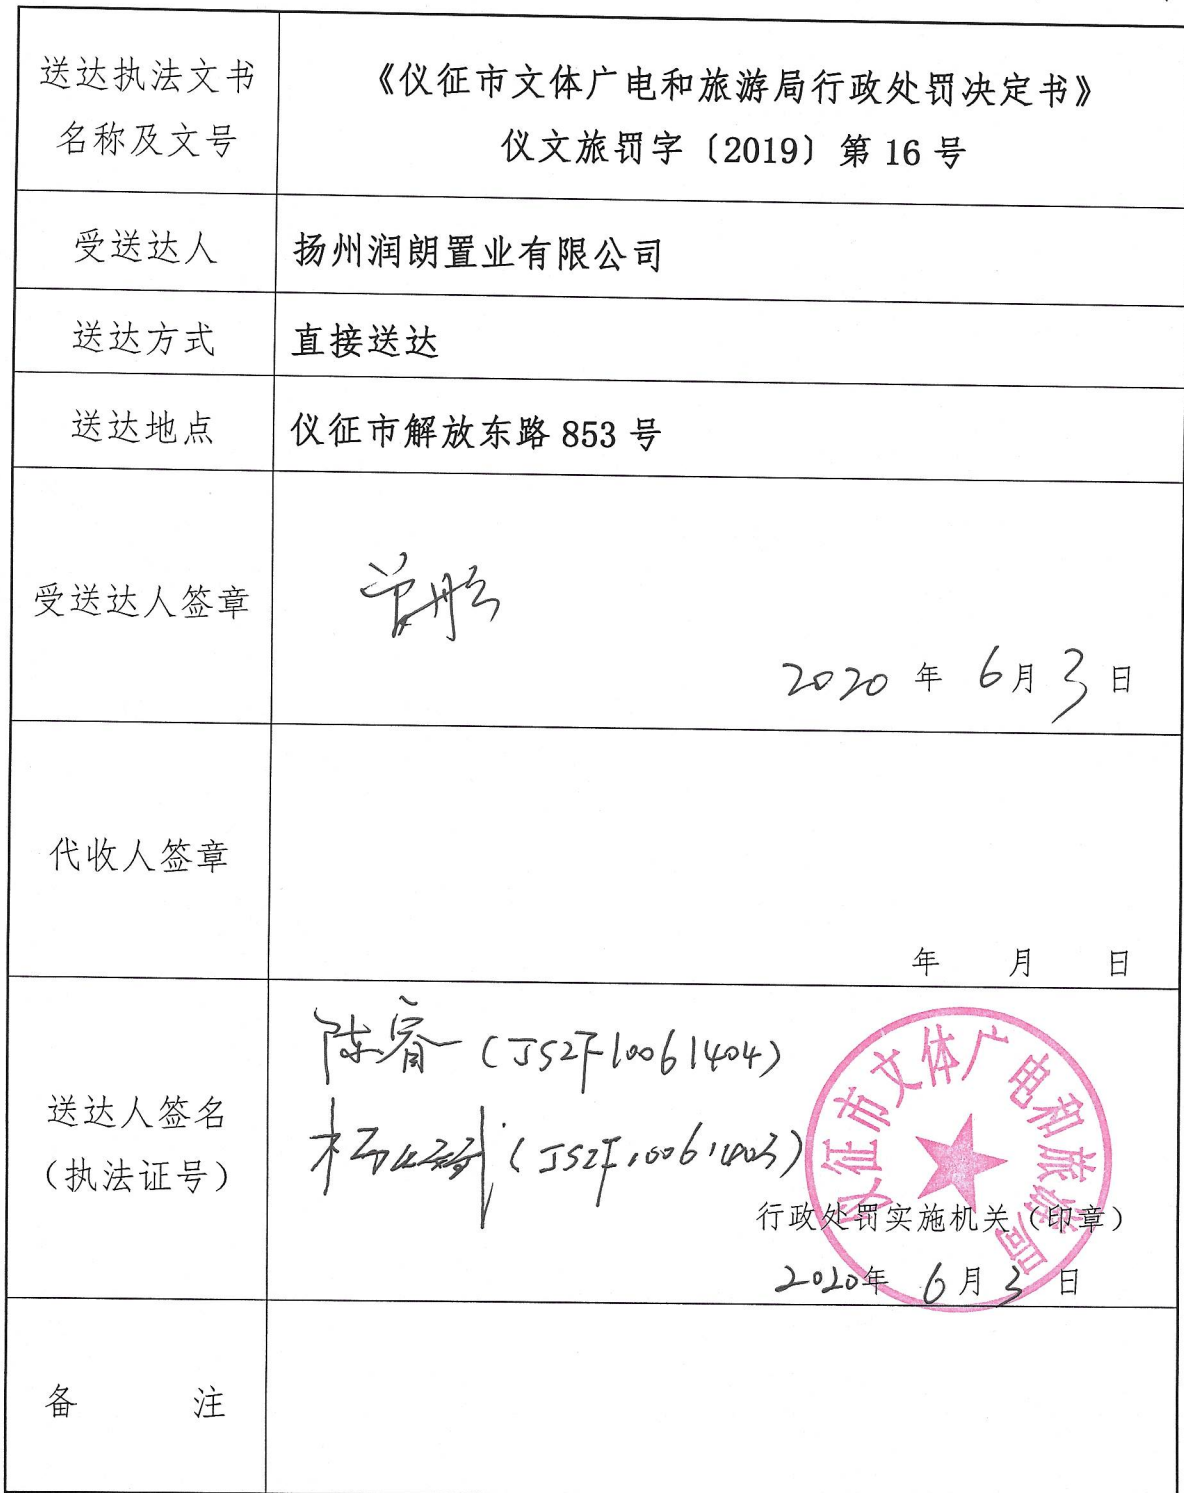 送达执法文书
名称及文号
《仪征市文体广电和旅游局行政处罚决定书》
仪文旅罚字〔2019〕第 16 号
受送达人
扬州润朗置业有限公司
送达方式
直接送达
送达地点
仪征市解放东路 853 号
受送达人签章
2020 年 6月 3 日
代收人签章
年 月 日
送达人签名
（执法证号）
陈睿（JSZF10061404）
（JSZF10061403）
仪征市文体广电和旅游局
行政处罚实施机关（印章）
2020年 6月 3 日
备 注